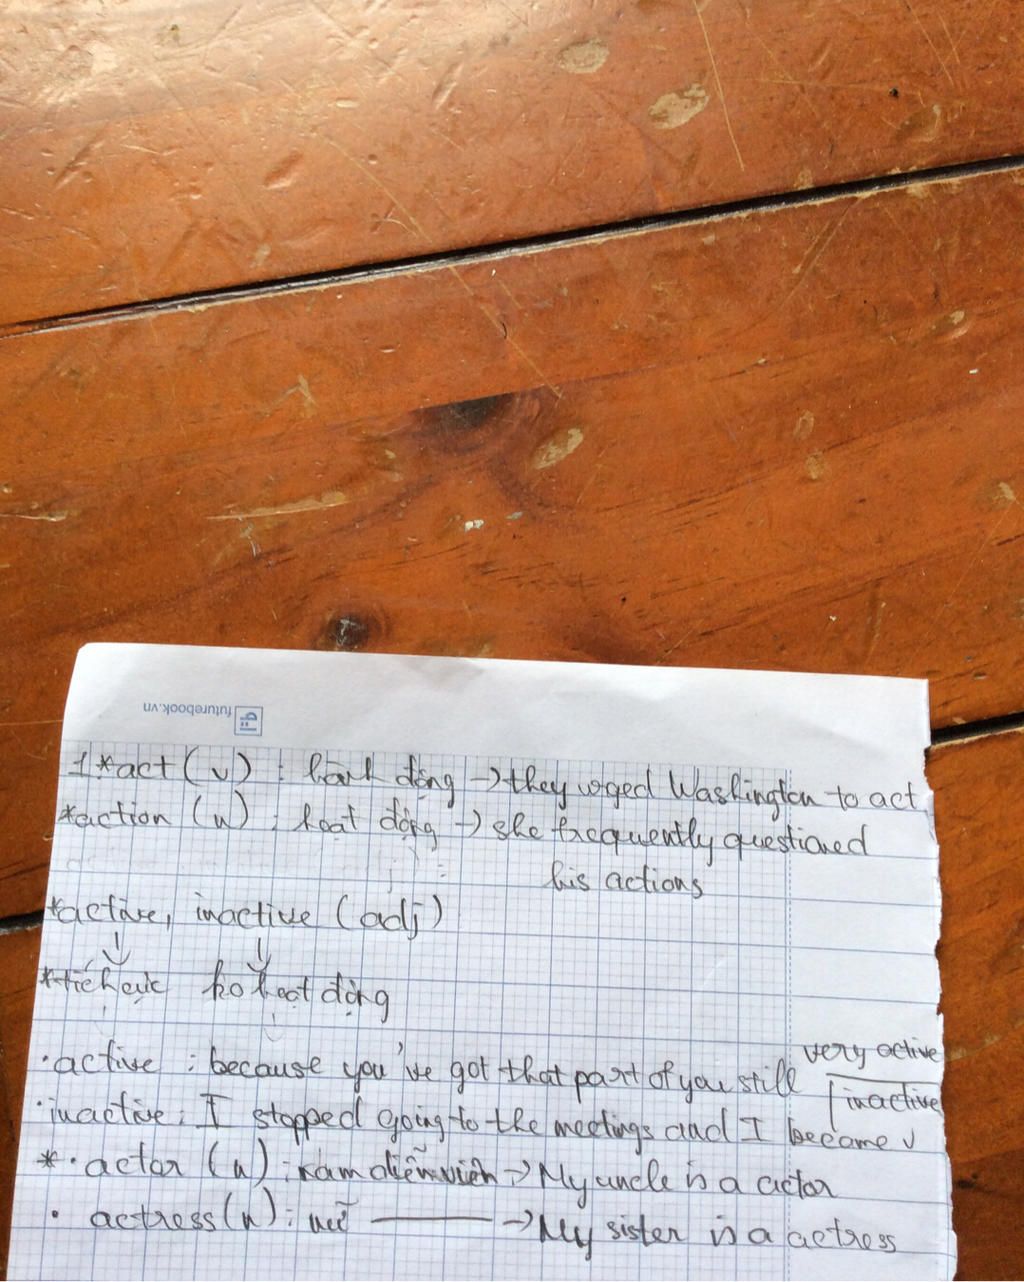 futurebook.vn
1*act (v) : hành động → they urged Washington to act
*action (n) : hoạt động → she frequently questioned
his actions
*active, inactive (adj)
↓ ↓
*tích cực ko hoạt động
very active
• active : because you've got that part of you still
inactive
• inactive : I stopped going to the meetings and I become
* • actor (n) : nam diễn viên → My uncle is a actor
• actress (n) : nữ ——— → My sister is a actress